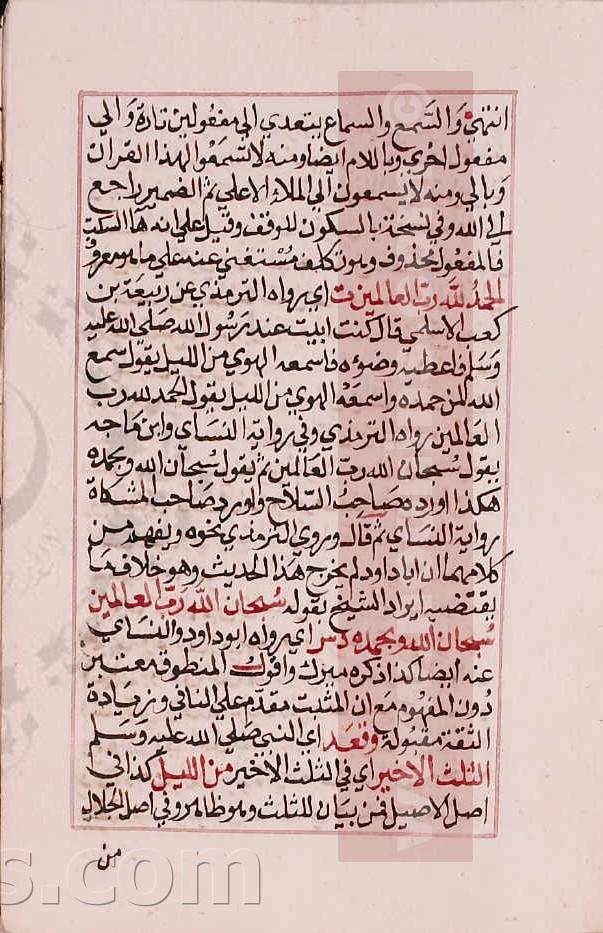 انتهي والسمع والسماع يتعدي الي مفعولين تارة والي
مفعول اخري وباللام ايضا ومنه لا تسمعوا لهذا القران
وبالي ومنه لا يسمعون الي الملاء الاعلي ثم الضمير راجع
الي الله وفي نسخة بالسكون للوقف وقيل علي انه هاالسكت
فالمفعول محذوف وبدون كلف مستغني عنه علي ما هو معروف
الحمد لله رب العالمين ت اي رواه الترمذي عن ربيعة بن
كعب الاسلمي قال كنت ابيت عند رسول الله صلي الله عليه
وسلم فاعطيه وضوءه فاسمعه الهوي من الليل يقول سمع
الله لمن حمده واسمعه الهوي من الليل يقول الحمد لله رب
العالمين رواه الترمذي وفي رواية النساي وابن ماجه
يقول سبحان الله رب العالمين ثم يقول سبحان الله وبحمده
هكذا اورده صاحب السلاح واورد صاحب المشكاة
رواية النساي ثم قال وروي الترمذي نحوه ويفهم من
كلامهما ان ابا داود لم يخرج هذا الحديث وهو خلاف ما
يقتضيه ايراد الشيخ بقوله سبحان الله رب العالمين
سبحان الله وبحمده دس اي رواه ابو داود والنساي
عنه ايضا كذا ذكره ميرك واقول المنطوق معتبر
دون المفهوم مع ان المثبت مقدم علي النافي وزيادة
الثقة مقبولة وقعد اي النبي صلي الله عليه وسلم
الثلث الاخير اي في الثلث الاخير من الليل كذا في
اصل الاصيل فمن بيان للثلث وهو ظاهر وفي اصل الجلال
من
s.com